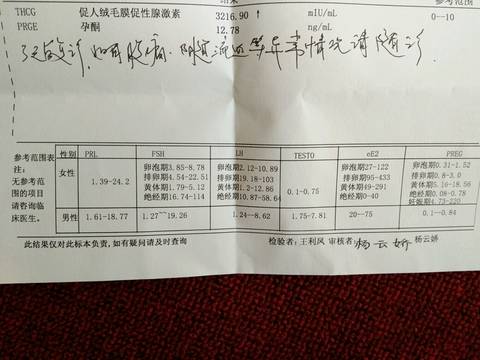 结果 参考范围
THCG 促人绒毛膜促性腺激素 3216.90 ↑ mIU/mL 0--10
PRGE 孕酮 12.78 ng/mL
3天后复诊,如有腹痛、阴道流血等异常情况请随诊
参考范围表 性别 PRL FSH LH TESTO eE2 PREG
注:
无参考范围的项目请咨询临床医生。
女性 1.39-24.2 卵泡期3.85-8.78 卵泡期2.12-10.89 0.1-0.75 卵泡期27-122 卵泡期0.31-1.52
排卵期4.54-22.51 排卵期19.18-103 排卵期95-433 排卵期0.8-3.0
黄体期1.79-5.12 黄体期1.2-12.86 黄体期49-291 黄体期5.16-18.56
绝经期16.74-114 绝经期10.87-58.64 绝经期0-40 绝经期0.08-0.78
妊娠期4.73-220
男性 1.61-18.77 1.27~19.26 1.24-8.62 1.75-7.81 20--75 0.1--0.84
此结果仅对此标本负责,如有疑问请及时查询 检验者:王利风 审核者: 杨云娇 杨云娇